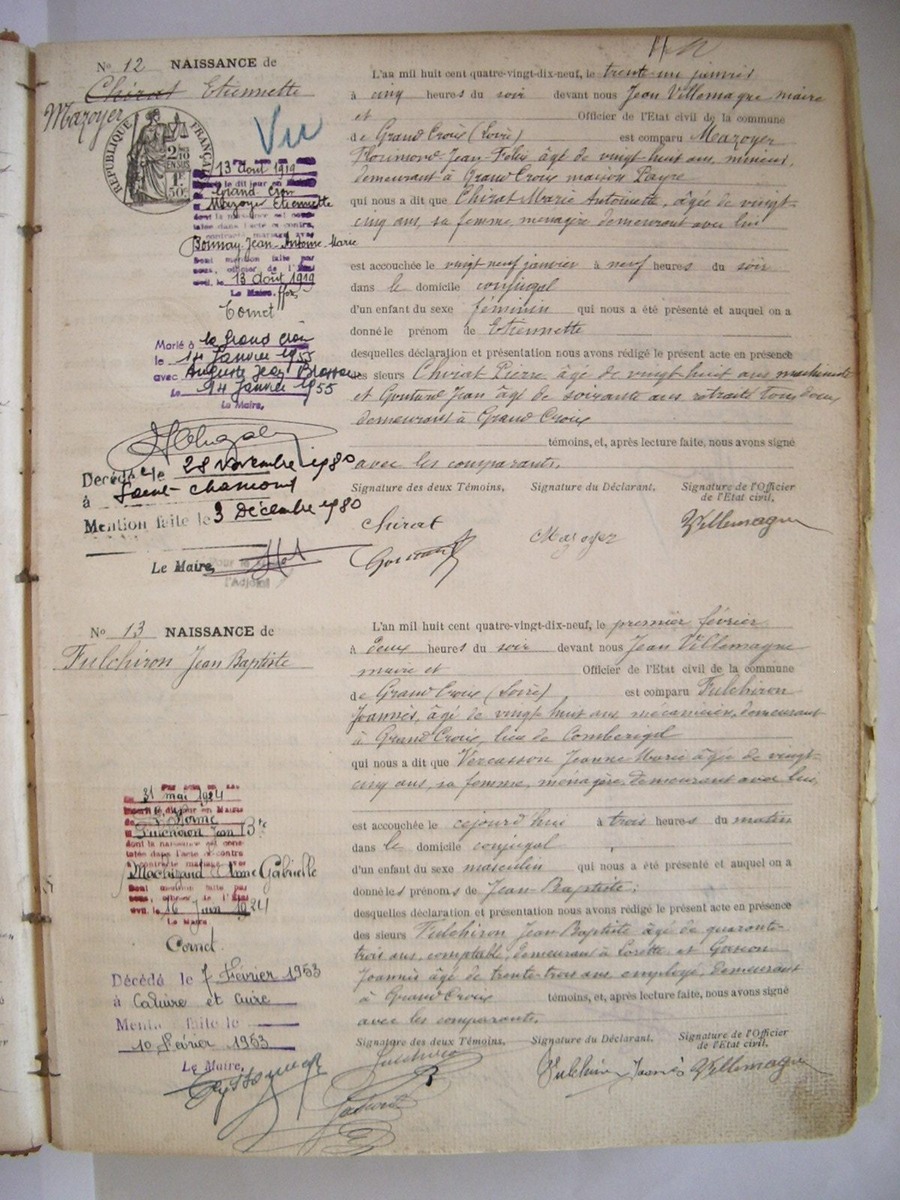 No 12 NAISSANCE de
Chirat Etiennette
Mazoyer
RÉPUBLIQUE FRANÇAISE
Vu
13 Août 1919
Grand Croix
Mazoyer Etiennette
Bonnay Jean-Antoine-Marie
Sont mention faite par
nous, officier de l'État
civil, le 13 Août 1919
Le Maire,
Cornet
Marié à la Grand Croix
le 14 Janvier 1955
avec Auguste Jean
Le 14 Janvier 1955
Le Maire,
Décédée le 28 Novembre 1980
à Saint-Chamond
Mention faite le 3 Décembre 1980
Le Maire,
l'Adjoint
L'an mil huit cent quatre-vingt-dix-neuf, le trente-un janvier
à cinq heures du soir devant nous Jean Villemagne maire
et Officier de l'Etat civil de la commune
de Grand Croix (Loire) est comparu Mazoyer
Florimond Jean Félix âgé de vingt huit ans, mineur,
demeurant à Grand Croix maison Payre
qui nous a dit que Chirat Marie Antoinette, âgée de vingt-
cinq ans, sa femme, ménagère demeurant avec lui
est accouchée le vingt neuf janvier à neuf heures du soir
dans le domicile conjugal
d'un enfant du sexe féminin qui nous a été présenté et auquel on a
donné le prénom de Etiennette
desquelles déclaration et présentation nous avons rédigé le présent acte en présence
des sieurs Chirat Pierre âgé de vingt huit ans
et Jean âgé de soixante ans retraité tous deux
demeurant à Grand Croix
témoins, et, après lecture faite, nous avons signé
avec les comparants.
Signature des deux Témoins, Signature du Déclarant, Signature de l'Officier
de l'Etat civil,
Chirat Mazoyer Villemagne
No 13 NAISSANCE de
Fulchiron Jean Baptiste
31 mai 1924
inscrit le dit jour en Mairie
de l'Horme
Fulchiron Jean Bte
dont la naissance est cons-
tatée dans l'acte ci-contre
a contracté mariage avec
Gabrielle
Sont mention faite par
nous, officier de l'État
civil, le 16 Juin 1924
Le Maire
Cornet
Décédé le 7 Février 1963
à Caluire et Cuire
Mention faite le
10 Février 1963
Le Maire,
L'an mil huit cent quatre-vingt-dix-neuf, le premier février
à deux heures du soir devant nous Jean Villemagne
maire et Officier de l'Etat civil de la commune
de Grand Croix (Loire) est comparu Fulchiron
Joannès, âgé de vingt huit ans mécanicien, demeurant
à Grand Croix, lieu de Comberigol
qui nous a dit que Vercasson Jeanne Marie âgée de vingt-
cinq ans, sa femme, ménagère, demeurant avec lui,
est accouchée cejourd'hui à trois heures du matin
dans le domicile conjugal
d'un enfant du sexe masculin qui nous a été présenté et auquel on a
donné les prénoms de Jean-Baptiste;
desquelles déclaration et présentation nous avons rédigé le présent acte en présence
des sieurs Fulchiron Jean Baptiste âgé de quarante-
trois ans, comptable, demeurant à Lorette et
Joannès âgé de trente-trois ans employé, demeurant
à Grand Croix témoins, et, après lecture faite, nous avons signé
avec les comparants.
Signature des deux Témoins, Signature du Déclarant, Signature de l'Officier
de l'Etat civil,
Fulchiron Fulchiron Joannès Villemagne